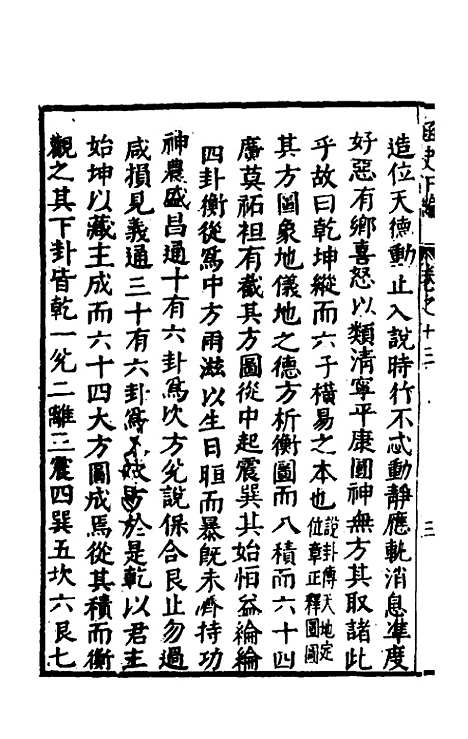 函史下編
卷之十三
三
造位天德動止入說時行不忒動靜應軌消息準度
好惡有鄉喜怒以類清寧平康圜神無方其取諸此
乎故曰乾坤縱而六子橫易之本也說卦傳天地定位章正釋圓圖
其方圖象地儀地之德方析衡圖而八積而六十四
廣莫祏袒有截其方圖從中起震巽其始恒益綸綸
四卦衡從爲中方雨滋以生日晅而暴旣未濟持功
神農盛昌通十有六卦爲次方兊說保合艮止勿過
咸損見義通三十有六卦爲於是乾以君主
始坤以藏主成而六十四大方圖成焉從其積而衡
觀之其下卦皆乾一兊二離三震四巽五坎六艮七